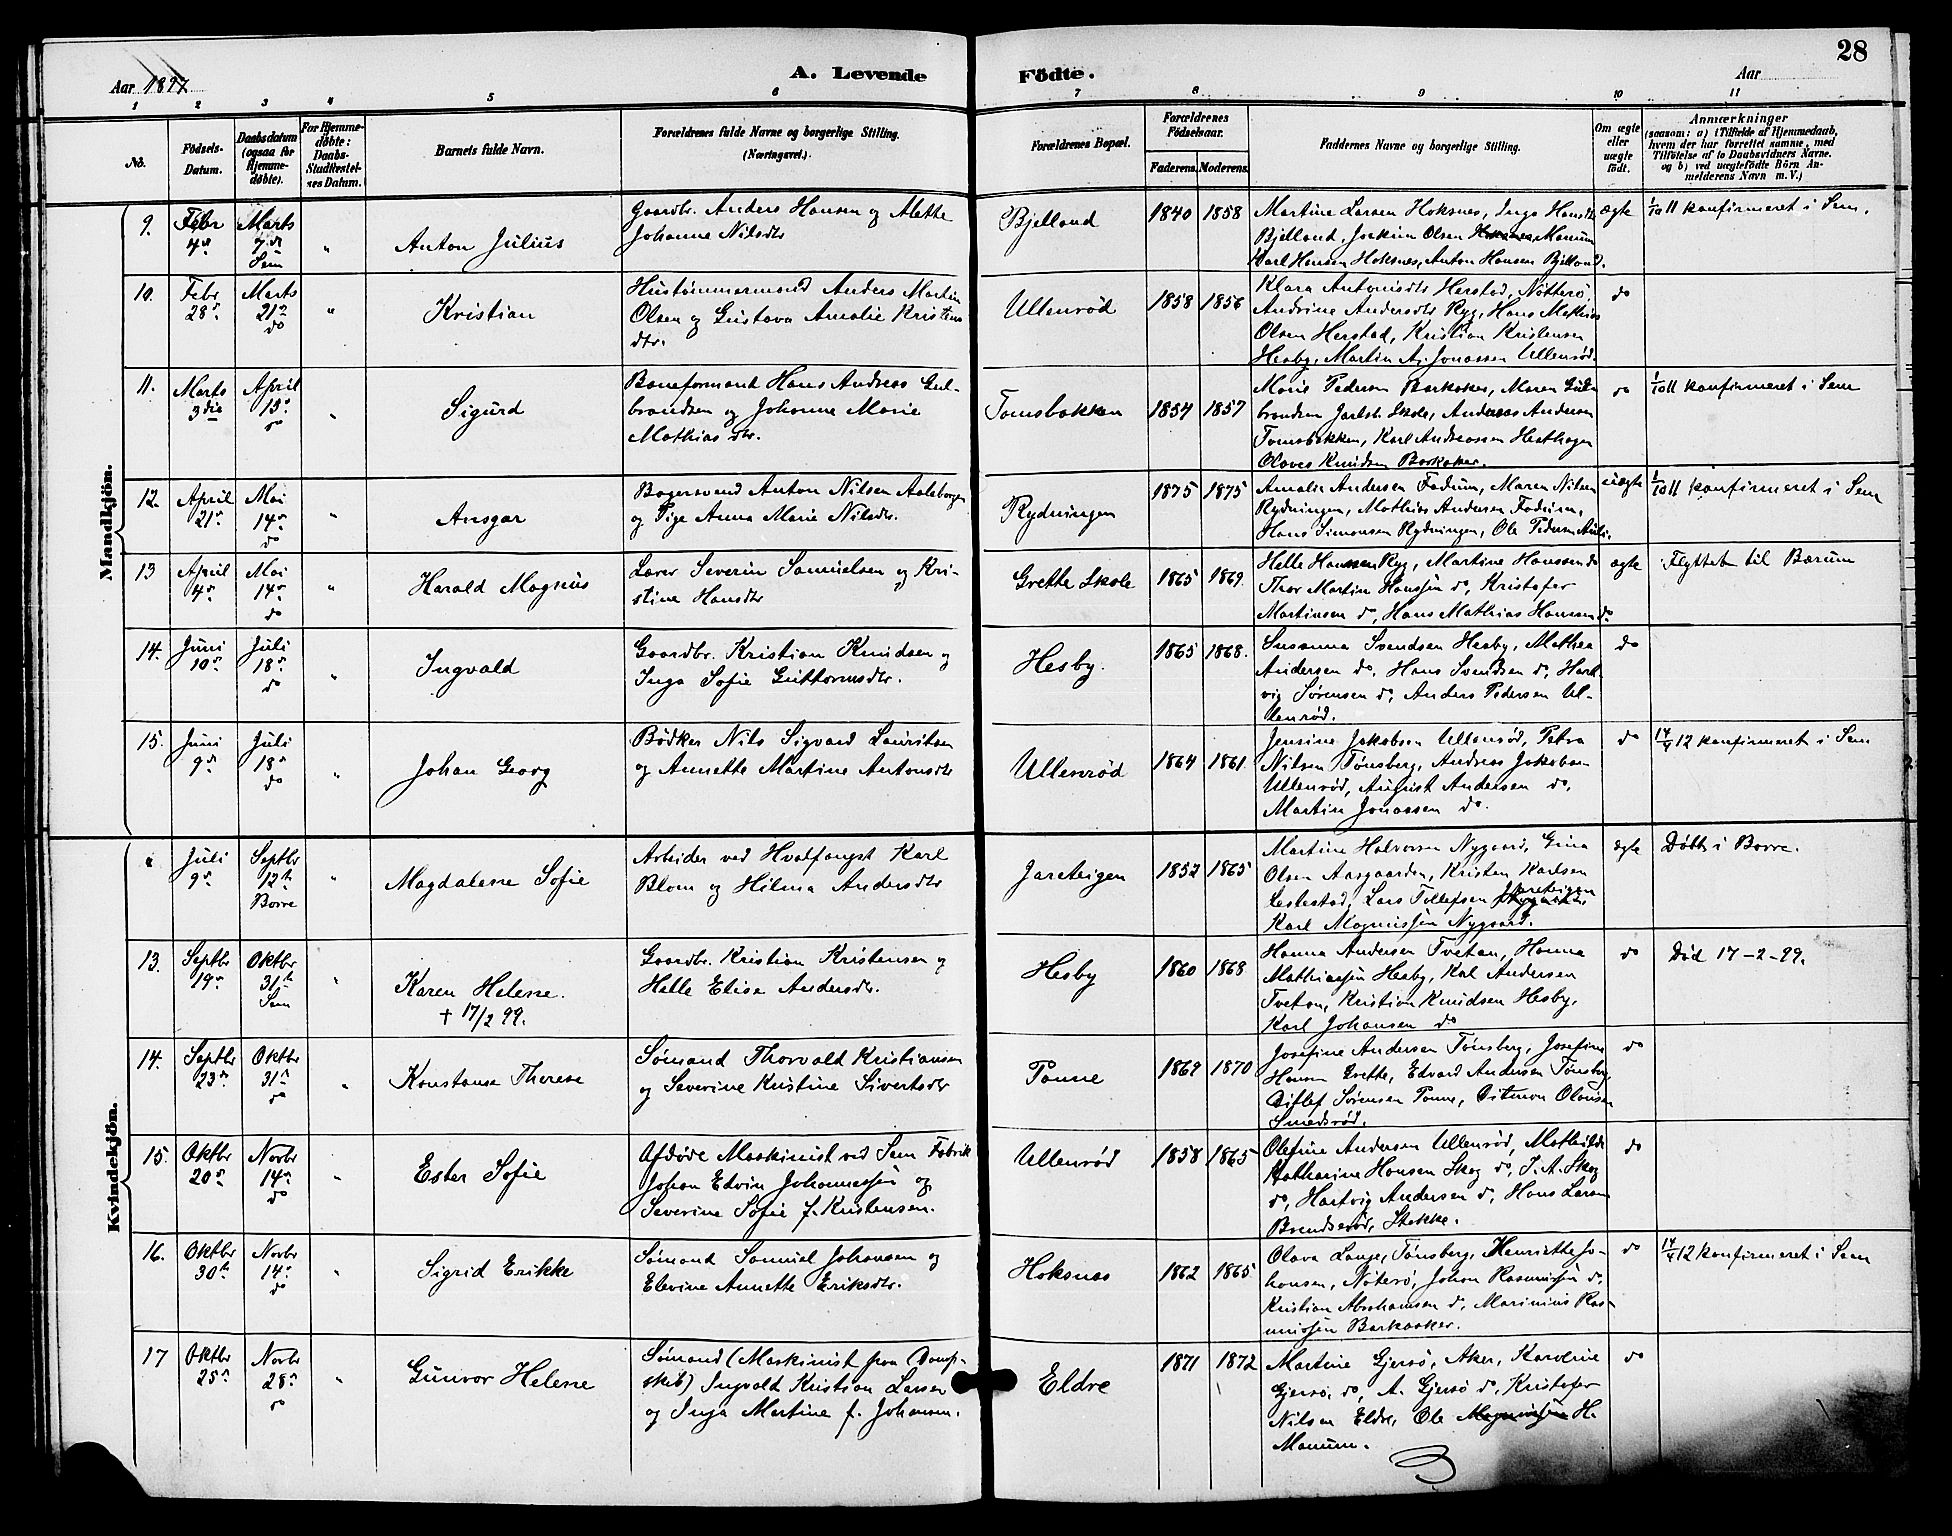 28
Aar 1897
A. Levende Födte.
Aar
1 2 3 4 5 6 7 8 9 10 11
No.
Födsels-Datum.
Daabsdatum (ogsaa for Hjemme-døbte).
For Hjemme-døbte: Daabs-Stadfæstel-ses Datum.
Barnets fulde Navn.
Forældrenes fulde Navne og borgerlige Stilling. (Næringsvei.)
Forældrenes Bopæl.
Forældrenes Födselsaar.
Faderens. Moderens.
Faddernes Navne og borgerlige Stilling.
Om ægte eller uægte født.
Anmærkninger
(saasom: a) i Tilfælde af Hjemmedaab, hvem der har forrettet samme, med Tilføielse af to Daabsvidners Navne. og b) ved uægtefødte Börn An-melderens Navn m. V.)
Mandkjön.
9. Febr 4de Marts 7de Sem " Anton Julius
Gaardbr. Anders Hansen og Mette
Johanne Nilsdtr
Bjelland 1840 1858
Martine Larsen Hoksnes, Inga Hansdtr
Bjelland, Joakim Olsen Manum
Karl Hansen Hoksnes, Anton Hansen Bjelland.
ægte 1/10 11 konfirmeret i Sem.
10. Febr 28de Marts 21de do " Kristian
Hustømmermand Anders Martin
Olsen og Gustava Amalie Kristens
dtr.
Ullenrød 1858 1856
Klara Antonisdtr Herstad, Nøtterø,
Andrine Andersdtr Ryg, Hans Mathias
Olsen Herstad, Kristian Kristensen
Hesby, Martin Aj. Jonassen Ullenrød.
do
11. Marts 3die April 15de do " Sigurd
Baneformand Hans Andreas Gul-
brandsen og Johanne Marie
Mathiasdtr.
Tomsbakken 1854 1857
Maris Pedersen Barkaker, Maren Gul-
brandsen Jarlsb. Skole, Andreas Andersen
Tomsbakken, Karl Andreassen Hesthagen
Olaves Knudsen Barkaker.
do 1/10 11 konfirmeret i Sem
12. April 21de Mai 14de do " Ansgar
Bagersvend Anton Nilsen Aaleborgen
og Pige Anna Marie Nilsdtr.
Rydningen 1875 1875
Amalie Andersen Fadum, Maren Nilsen
Rydningen, Mathias Andersen Fadum,
Hans Simonsen Rydningen, Ole Pedersen Auli.
uægte 1/10 11 konfirmeret i Sem
13 April 4de Mai 14de do " Harald Magnus
Lærer Severin Samuelsen og Kri-
stine Hansdtr
Grette Skole 1865 1869.
Helle Hansen Ryg, Martine Hanssen do
Thor Martin Hanssen do, Kristofer
Martinsen do, Hans Mathias Hansen do
ægte Flyttet til Bærum
14. Juni 10de Juli 18de do " Ingvald
Gaardbr. Kristian Knudsen og
Inga Sofie Guttormsdtr.
Hesby. 1865 1868.
Susanna Svendsen Hesby, Mathea
Andersen do, Hans Svendsen do, Hart-
vig Sørensen do, Anders Pedersen Ul-
lenrød.
do
15. Juni 9de Juli 18de do " Johan Georg
Bødker Nils Sigvard Lauritsen
og Annette Martine Antonsdtr
Ullenrød 1864 1861.
Jensine Jakobsen Ullenrød, Petra
Nilsen Tønsberg, Andreas Jakobsen
Ullenrød, August Andersen do,
Martin Jonassen do.
do 14/4 12 konfirmeret i Sem
Kvindekjön.
Juli 9de Septbr 12te Borre " Magdalene Sofie
Arbeider ved Hvalfangst Karl
Blom og Hilma Andersdtr
Jareteigen 1852 1865
Martine Halvorsen Nygaard, Gina
Olsen Aasgaarden, Kristen Karlsen
Leblestad, Lars Tollefsen Jareteigen
Karl Magnussen Nygaard.
ægte Døbt i Borre.
13. Septbr 19de Oktbr 31te Sem " Karen Helene.
+ 17/2 99.
Gaardbr. Kristian Kristensen og
Helle Elise Andersdtr.
Hesby 1860 1868
Hanna Andersen Tvetan, Hanna
Mathiassen Hesby, Karl Andersen
Tvetan, Kristian Knudsen Hesby,
Karl Johansen do
do Død 17-2-99.
14. Septbr 23de Oktbr 31te do " Konstanse Therese
Sømand Thorvald Kristiansen
og Severine Kristine Sivertsdtr
Tonne 1869 1870
Josefine Andersen Tønsberg, Josefine
Hansen Grette, Edvard Andersen Tønsberg
Ditlef Sørensen Tonne, Ditman Olausen
Smedsrød.
do
15. Oktbr 20de Novbr 14de do " Ester Sofie
Afdøde Maskinist ved Sem Fabrik
Johan Edvin Johannessen og
Severine Sofie f. Kristensen.
Ullenrød 1858 1865
Olefine Andersen Ullenrød, Mathilde
Katharine Hansen Skog do, J. A. Skog
do, Hartvig Andersen do, Hans Larsen
Brendsrød, Stokke.
do
16. Oktbr 30te Novbr 14de do " Sigrid Erikke
Sømand Samuel Johansen og
Elevine Annette Eriksdtr.
Hoksnes 1862 1865
Olava Lange, Tønsberg, Henriette Jo-
hansen, Nøterø, Johan Rasmussen do,
Kristian Abrahamsen do, Marinius Ras-
mussen Barkaaker.
do 14/4 12 konfirmeret i Sem
17 Oktbr 25de Novbr 28de do " Gunvor Helene
Sømand (Maskinist paa Damp-
skib) Ingvald Kristian Larsen
og Inga Martine f. Johansen.
Eldre 1871 1872
Martine Gjersø, Aker, Karoline
Gjersø, do, A. Gjersø do, Kristofer
Nilsen Eldre, Ole Magnussen H.
Manum.
do